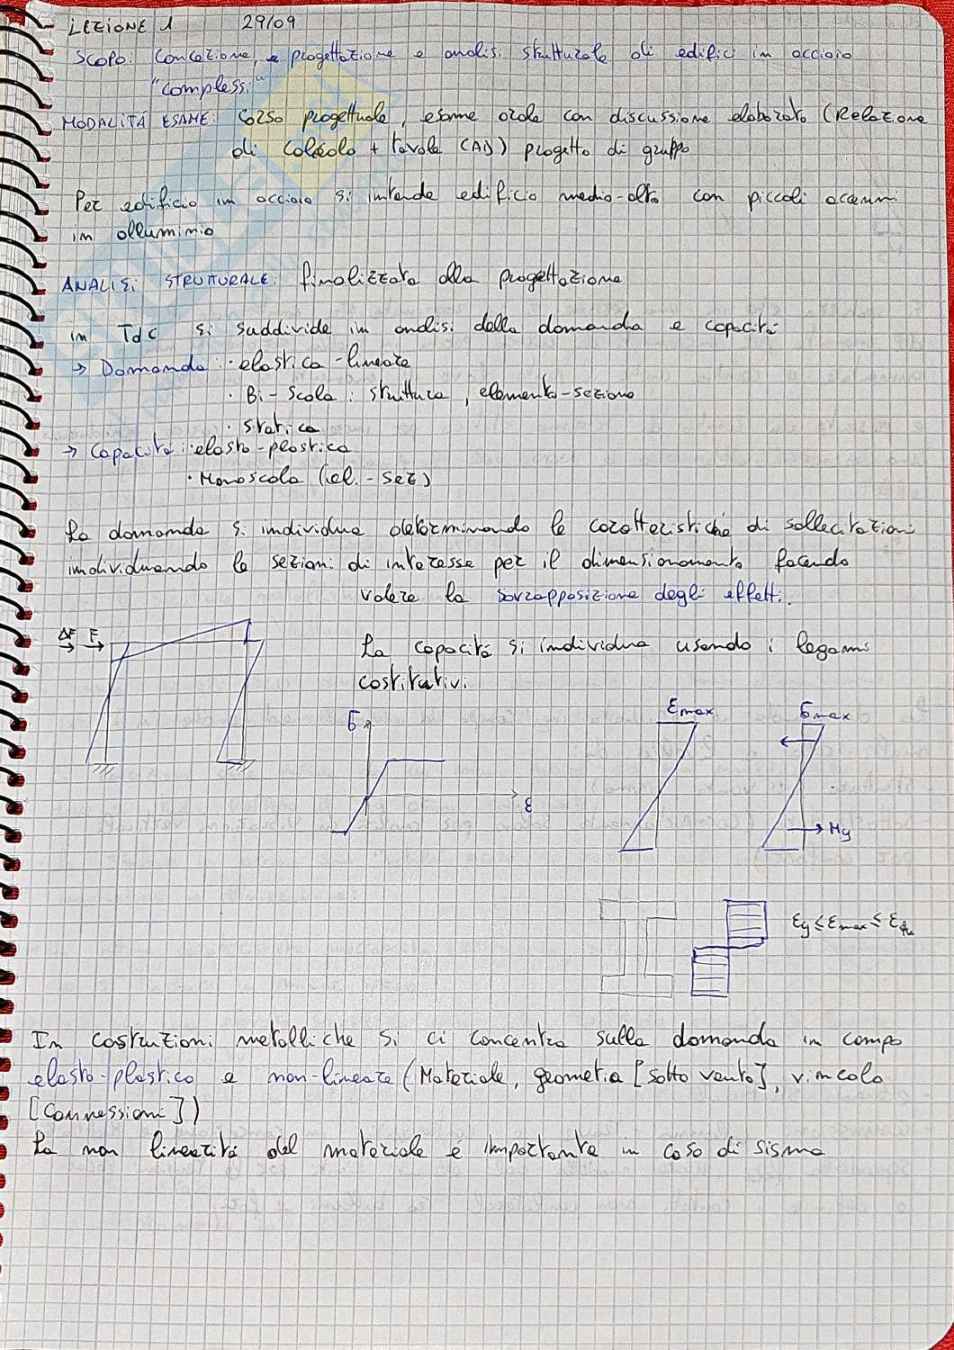 LEZIONE 1 29/09
SCOPO: Concezione, e progettazione e analisi strutturale di edifici in acciaio
"complessi"
MODALITÀ ESAME: Corso progettuale, esame orale con discussione elaborato (Relazione
di calcolo + tavole (A1)) progetto di gruppo
Per edificio in acciaio si intende edificio medio-alto con piccoli accenni
in alluminio
ANALISI STRUTTURALE: finalizzata alla progettazione
in TdC si suddivide in analisi della domanda e capacità
→ Domanda: · elastica-lineare
· Bi-scala: struttura, elemento-sezione
· statica
→ Capacità: · elasto-plastica
· Monoscala (el.-sez)
La domanda si individua determinando le caratteristiche di sollecitazioni
individuando le sezioni di interesse per il dimensionamento facendo
valere la sovrapposizione degli effetti.
ΔF F
La capacità si individua usando i legami
costitutivi
σ ε
εmax σmax
My
εy ≤ εmax ≤
In costruzioni metalliche si ci concentra sulla domanda in campo
elasto-plastico e non-lineare (Materiale, geometria [sotto vento], vincolo
[Connessioni])
La non linearità del materiale è importante in caso di sisma